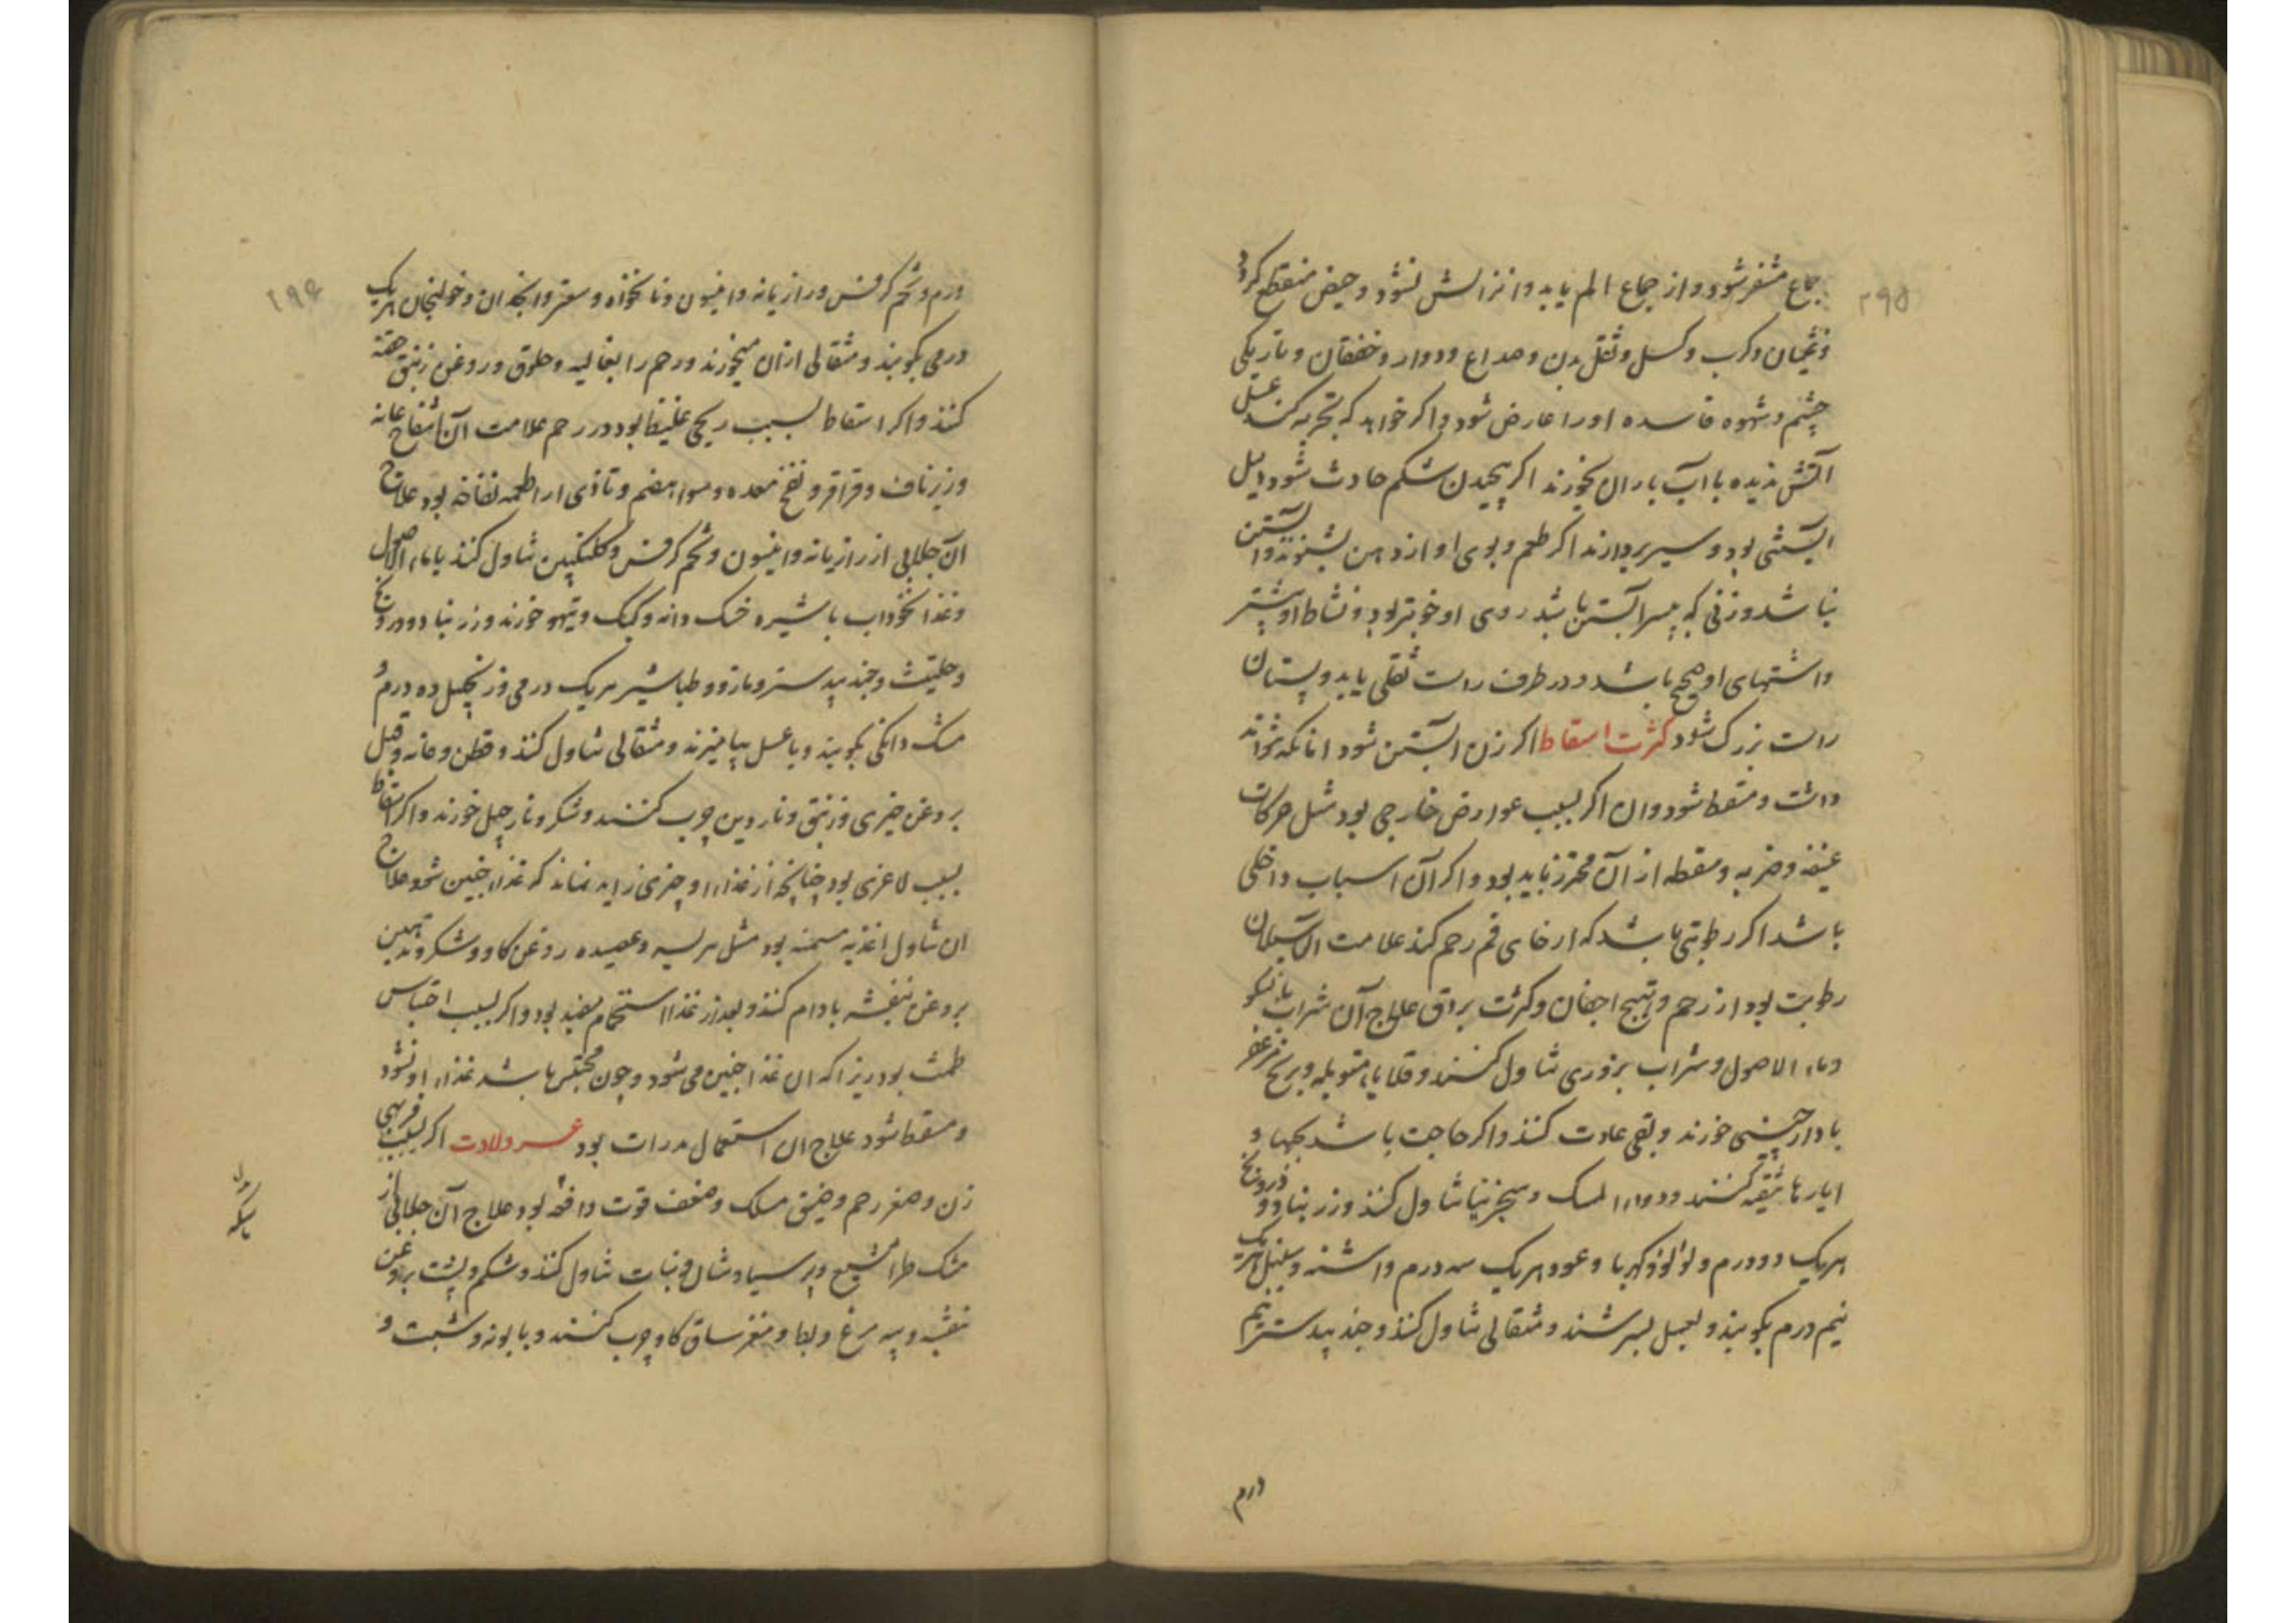 ۲۹۵
جماع متنفر شود و از جماع الم یابد و انزالش نشود و حیض منقطع کردد
و غثیان و کرب و کسل و ثقل بدن و صداع و دوار و خفقان و تاریکی
چشم و شهوه فاسده او را عارض شود و اکر خواهد که تجربه کنند عسل
آتش ندیده با آب باران بخورند اکر پیچیدن شکم حادث شود دلیل
آبستنی بود و سیر بردارند اکر طعم و بوی او از دهن بشنوند آبستن
نباشد و زنی که بپسر آبستن باشد روی او خوبتر بود و نشاط او بیشتر
و اشتهای او صحیح باشد و در طرف راست ثقلی یابد و پستان
راست بزرک شود کثرت اسقاط اکر زن آبستن شود اما نکه نتواند
داشت و مسقط شود و ان اکر بسبب عوارض خارجی بود مثل حرکات
عنیفه و ضربه و سقطه از آن محترز باید بود و اکر آن اسباب داخلی
باشد اکر رطوبتی باشد که ارخای فم رحم کند علامت آن سیلان
رطوبت بود از رحم و تهبج اجفان و کثرت بزاق علاج آن شراب بالنکو
و ماء الاصول و شراب بزوری تناول کنند و قلایاء متوبله و برنج مزعفر
با دارچینی خورند و بقی عادت کنند و اکر حاجت باشد بحبها و
ایارها تنقیه کنند و دواء المسک و سجزنیا تناول کنند و زرنباد و درونج
هریک دو درم و لؤلؤ و کهربا و عود هریک سه درم و اشنه و سنبل هریک
نیم درم بکوبند و بعسل بسرشند و مثقالی تناول کنند و جندبیدستر نیم
درم
۲۹۶
درم و تخم کرفس و رازیانه و انیسون و نانخواه و سعتر و انجدان و خولنجان هریک
درمی بکوبند و مثقالی از آن میخورند و رحم را بغالیه و خلوق و روغن زنبق حقنه
کنند و اکر اسقاط بسبب ریحی غلیظ بود در رحم علامت آن انتفاخ عانه
و زیر ناف و قراقر و نفخ معده و سوء هضم و تاذی از اطعمه نفاخه بود علاج
آن جلابی از رازیانه و انیسون و تخم کرفس و کلنکبین تناول کنند یا ماء الاصول
و غذا نخوداب با شیره خسک دانه و کبک و تیهو خورند و زرنباد و درونج
و حلتیت و جندبیدستر و مازو و طباشیر هریک درمی و زنجبیل ده درم و
مشک دانکی بکوبند و با عسل بیامیزند و مثقالی تناول کنند و قطن و عانه و قبل
بروغن خیری و زنبق و ناردین چرب کنند و شکر و نارجیل خورند و اکر اسقاط
بسبب لاغری بود چنانچه از غذاء او چیزی زاید نماند که غذاء جنین شود علاج
ان تناول اغذیه مسمنه بود مثل هریسه و عصیده روغن کاو و شکر و تدهین
بروغن بنفشه بادام کنند و بعد از غذا استحمام مفید بود و اکر بسبب احتباس
طمث بود زیرا که ان غذا جنین می شود و چون محتبس باشد غذاء او نشود
و مسقط شود علاج ان استعمال مدرات بود عسر ولادت اکر بسبب فربهی
زن و صغر رحم و ضیق مسلک و ضعف قوت دافعه بود علاج آن جلابی از
مشک طرامشیع و پرسیاوشان و نبات تناول کنند و شکم و پشت بروغن
بنفشه و پیه مرغ و بط و مغز ساق کاو چرب کنند و بابونه و شبت و